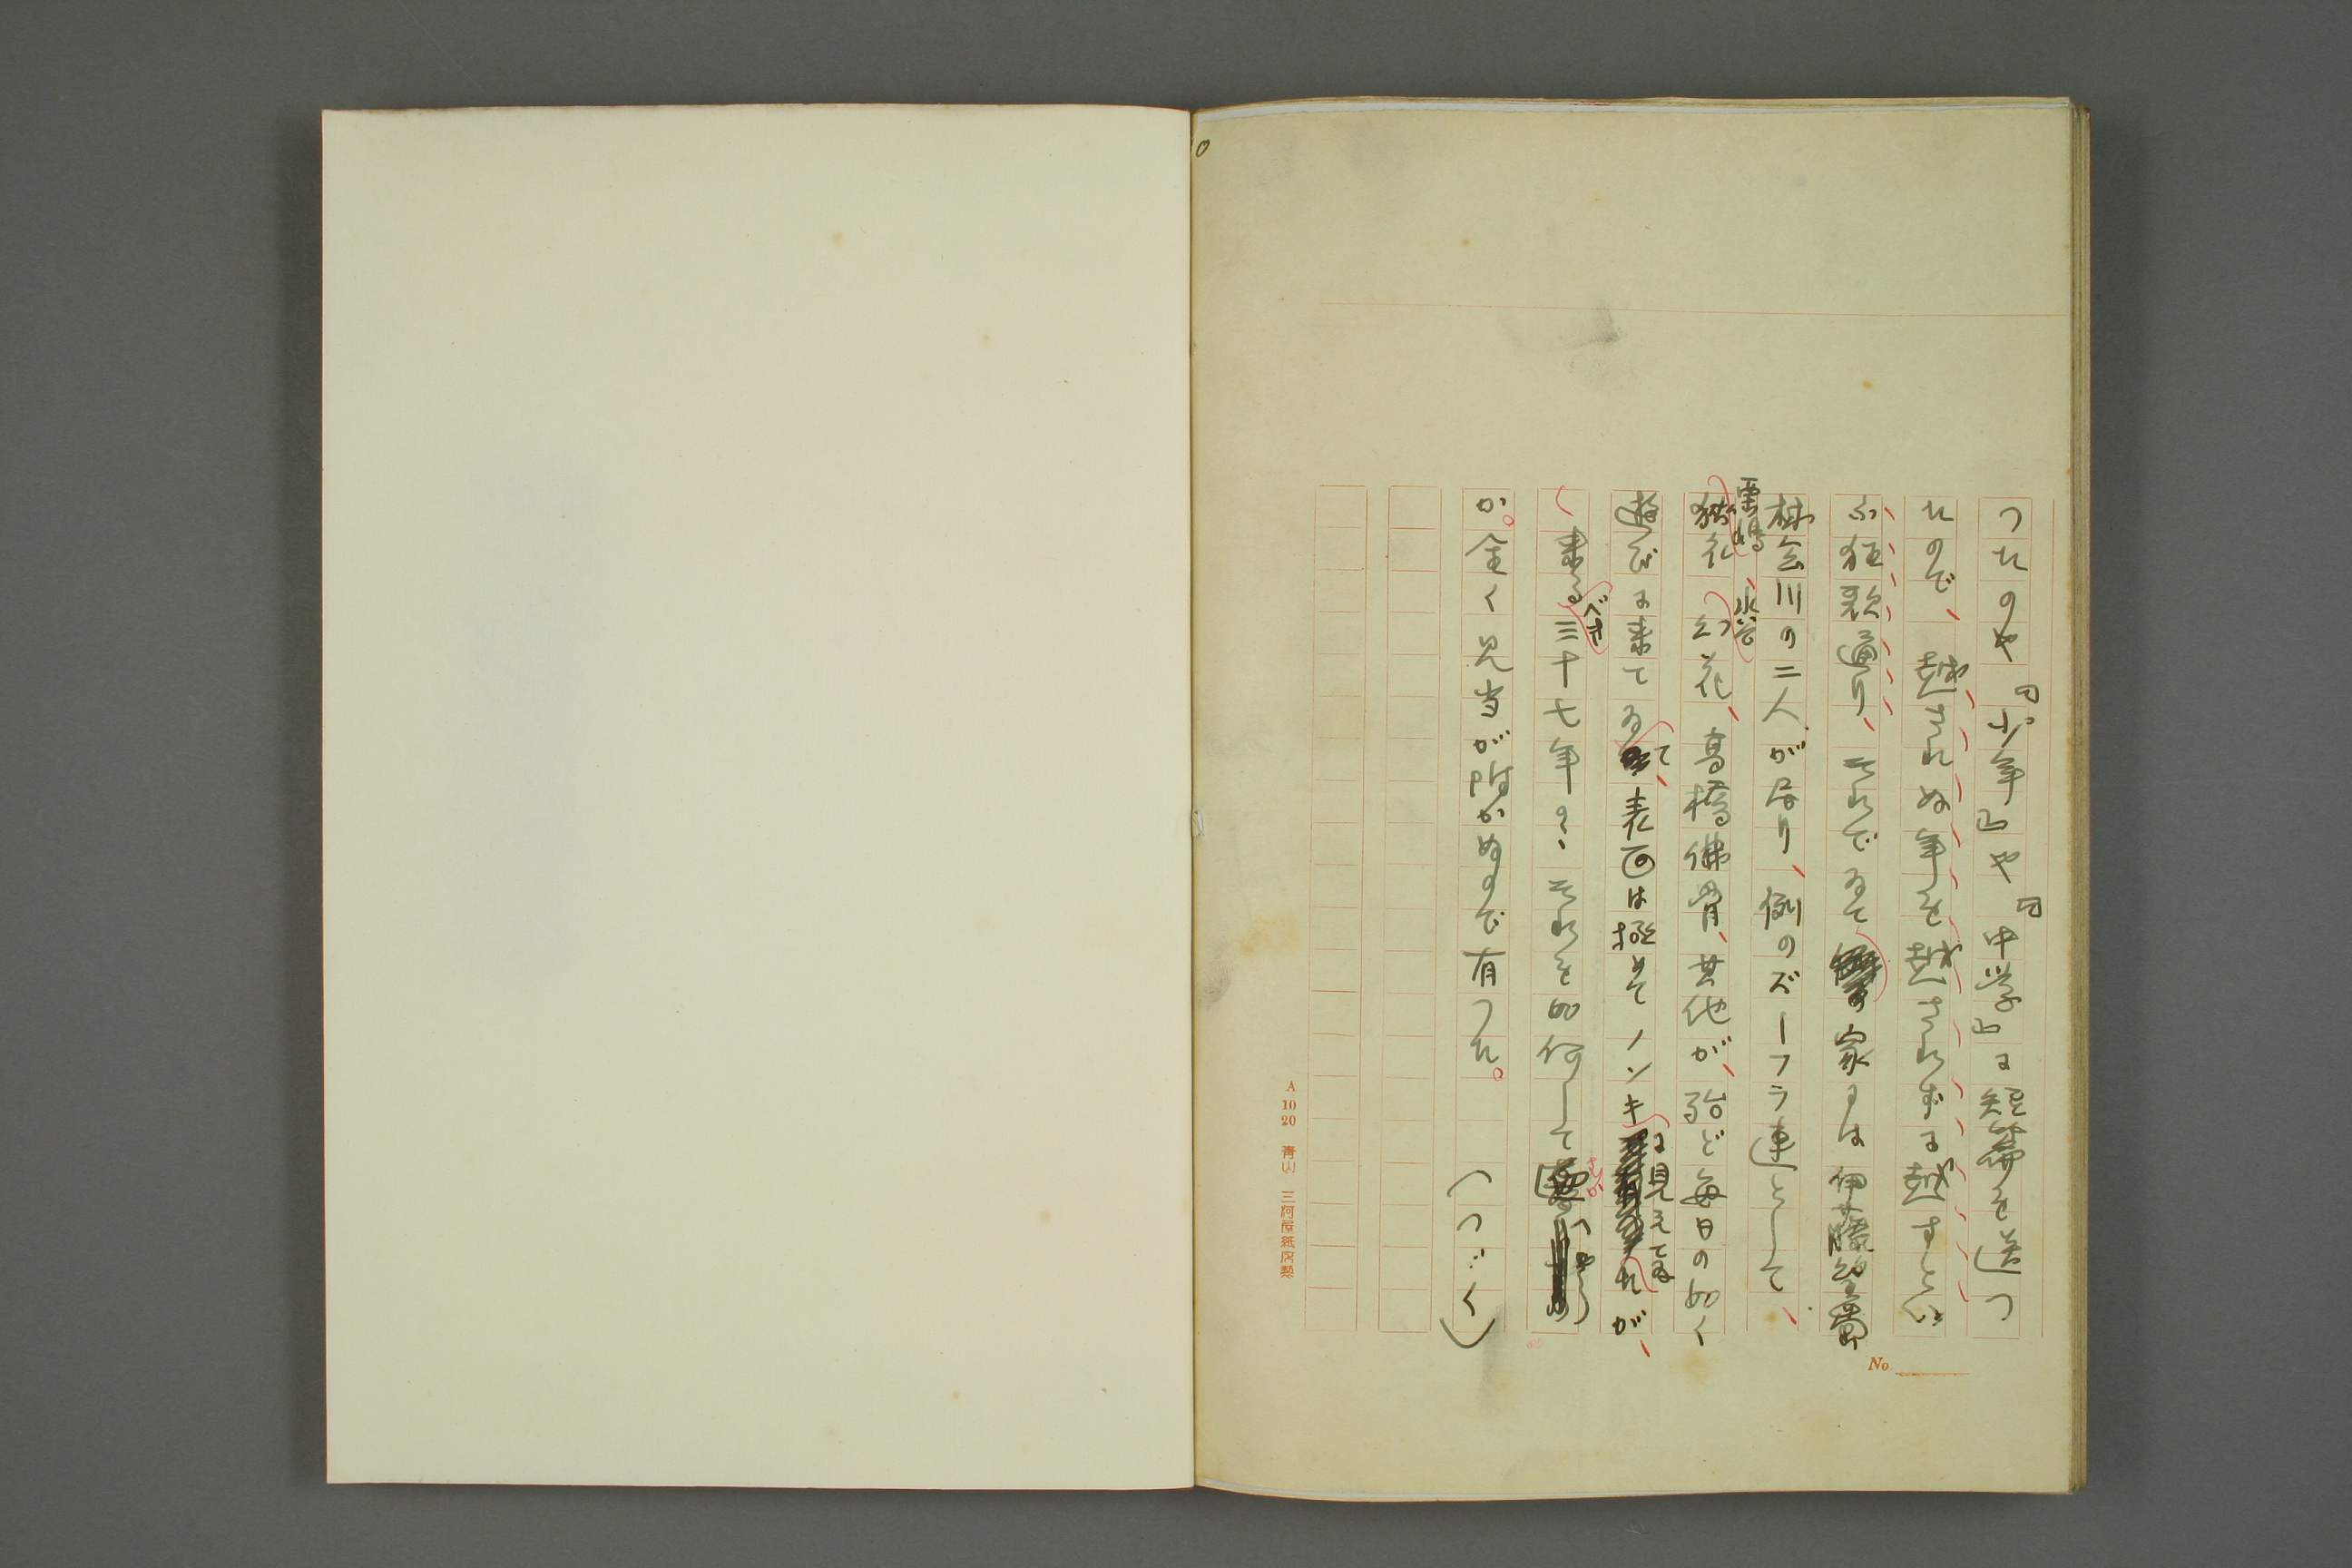 つたのや『少年』や『中学』に短篇を送つ
たので、越されぬ年を越されずに越すとい
ふ狂歌通り、それでゐて家には伊藤銀
林会川の二人が居り、例のズーフラ連として、
雲嶋
水谷
猪礼幻花、高橋佛骨、其他が、殆ど毎日の如く
遊びに来てゐて、表面は極めてノンキに見えてゐたが、
来るべき三十七年？、それを如何して迎へやう
か。全く見当が附かぬので有つた。
（つゞく）
No.
A 10 20 青山 三河屋紙店製